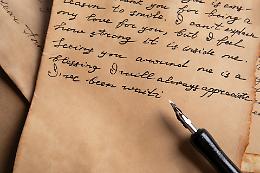 thank you for being a
reason to smile. I can't explain
my love for you, but I feel
how strong it is inside me.
Seeing you around me is a
blessing I will always appreciate
I've been writi